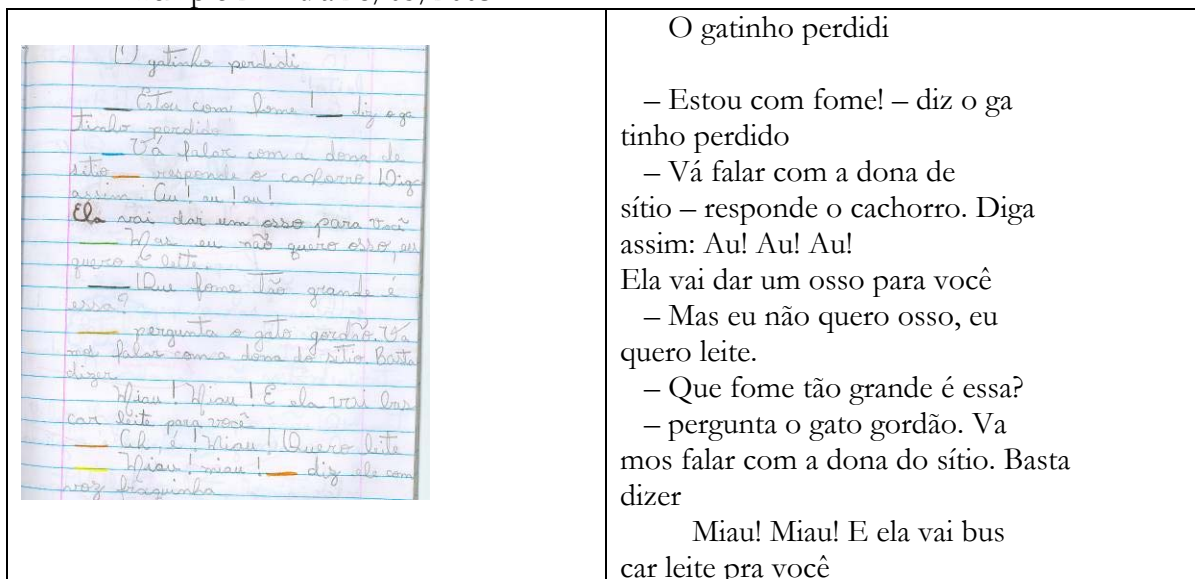 O gatinho perdidi
— Estou com fome! — diz o ga
tinho perdido
— Vá falar com a dona de
sítio — responde o cachorro. Diga
assim: Au! au! au!
Ela vai dar um osso para você
— Mas eu não quero osso, eu
quero leite.
— Que fome tão grande é
essa?
— pergunta o gato gordão. Va
mos falar com a dona do sítio. Basta
dizer
Miau! Miau! E ela vai bus
car leite para você
— Ah é! Miau! Quero leite
— Miau! miau! — diz ele com
voz fraquinha
O gatinho perdidi
– Estou com fome! – diz o ga
tinho perdido
– Vá falar com a dona de
sítio – responde o cachorro. Diga
assim: Au! Au! Au!
Ela vai dar um osso para você
– Mas eu não quero osso, eu
quero leite.
– Que fome tão grande é essa?
– pergunta o gato gordão. Va
mos falar com a dona do sítio. Basta
dizer
Miau! Miau! E ela vai bus
car leite pra você